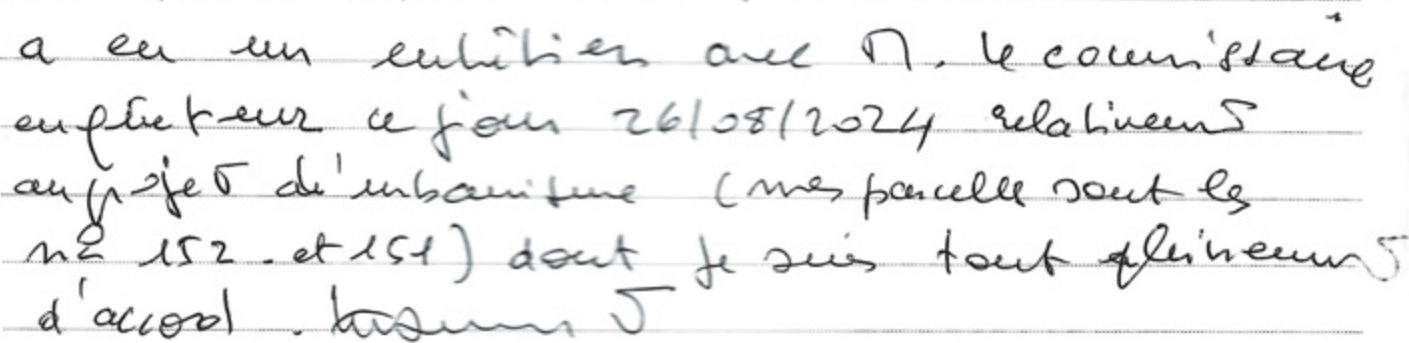 a eu un entretien avec M. le commissaire
enquêteur ce jour 26/08/2024 relativement
au projet d'urbanisme (mes parcelles sont les
n° 152. et 151) dont je suis tout pleinement
d'accord.